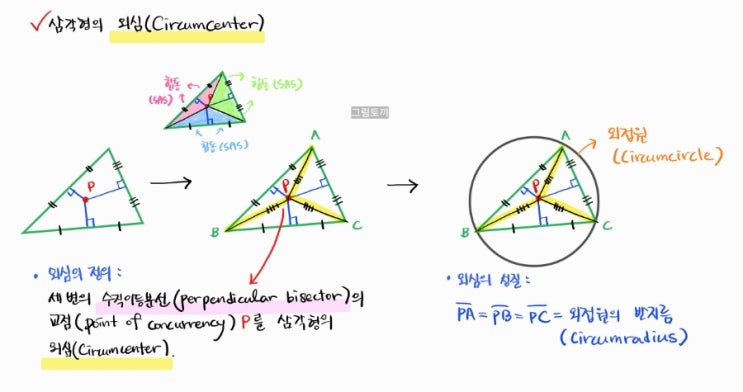 ✓삼각형의 외심(Circumcenter)
합동
(SAS)
합동(SAS)
합동(SAS)
P
그림토끼
P
A
P
B
C
A
P
B
C
외접원
(Circumcircle)
• 외심의 정의 :
세변의 수직이등분선(perpendicular bisector)의
교점(point of concurrency) P를 삼각형의
외심(Circumcenter).
• 외심의 성질 :
PA = PB = PC = 외접원의 반지름
(Circumradius)